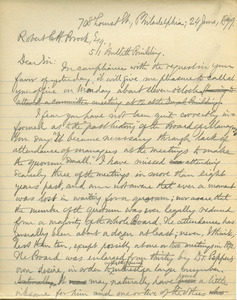 708 Locust St, Philadelphia; 24 June, 1899.
Robert C. H. Brock, Esq,
511 Bullitt Building.
Dear Sir: In compliance with the request in your
favor of yesterday, it will give me pleasure to call at
your office on Monday about eleven o'clock
attend a committee meeting at
I fear you have not been quite correctly in-
formed as to the past history of the Board of
you say "It became necessary through lack of
attendance of managers at the meetings to make
the quorum small." I have missed attending
scarcely three of the meetings in more than eight
years past, and am not aware that ever a moment
was lost in waiting for a quorum; nor aware that
the number of the quorum was ever legally reduced
from a majority of the whole Board. The attendance has
usually been about a dozen, at least; never, I think,
less than ten, except possibly above one meeting in
The Board was enlarged from thirty by Dr. Pepper's
own desire, in order to
may naturally, have been a little
irksome for him and one or two of the others